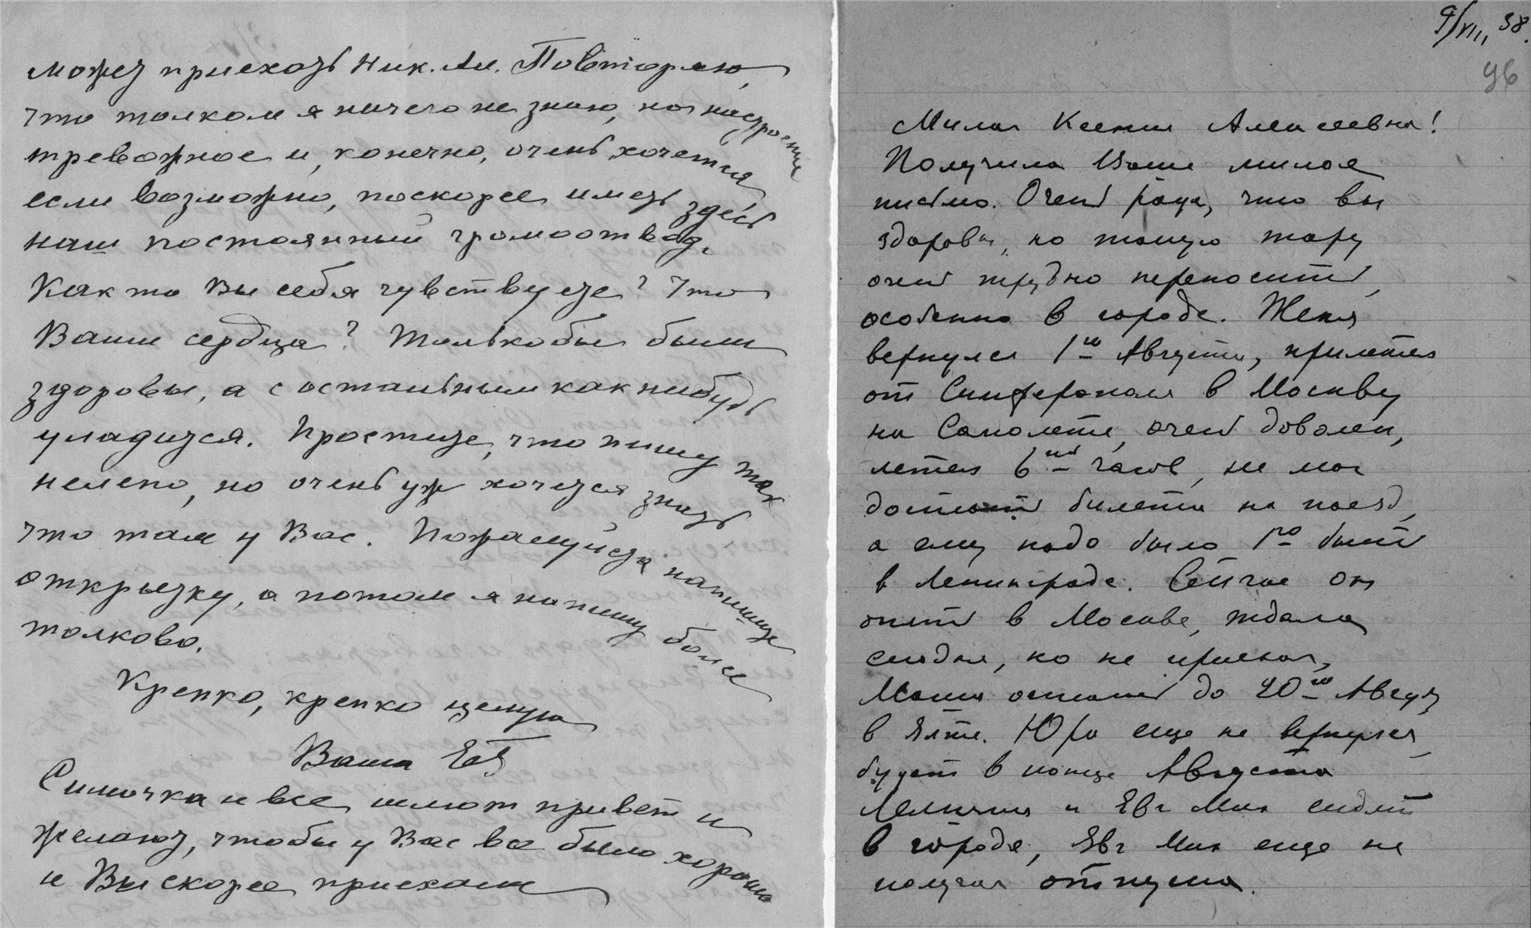 может приехать Ник. Ал. Повторяю,
что толком я ничего не знаю, но настроение
тревожное и, конечно, очень хочется
если возможно, поскорее иметь здесь
наш постоянный громоотвод.
Как то Вы себя чувствуете? Что
Ваше сердце? Только бы были
здоровы, а с остальным как нибудь
уладится. Простите, что пишу так
нелепо, но очень уж хочется знать
что там у Вас. Пожалуйста напишите
открытку, а потом я напишу более
толково.
Крепко, крепко целую
Ваша
Симочка и все шлют привет и
желают, чтобы у Вас все было хорошо
и Вы скорее приехали
9/VIII, 38.
96
Милая Ксения Алексеевна!
Получила Ваше милое
письмо. Очень рада, что вы
здоровы, но такую жару
очень трудно переносить,
особенно в городе. Женя
вернулся 1го Августа, прилетел
от Симферополя в Москву
на Самолете, очень доволен,
летел 6 часов, не мог
достать билета на поезд,
а ему надо было 1го быть
в Ленинграде. Сейчас он
опять в Москве, ждала
сегодня, но не приехал,
до 20го Август
в Ялте. Юра еще не вернулся,
будет в конце Августа
и Евг Мих сидят
в городе, Евг Мих еще не
получал отпуска.